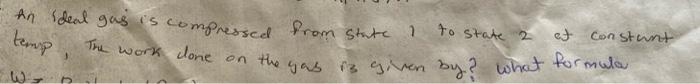 An ideal gas is compressed from state 1 to state 2 at constant
temp, The work done on the gas is given by? what formula